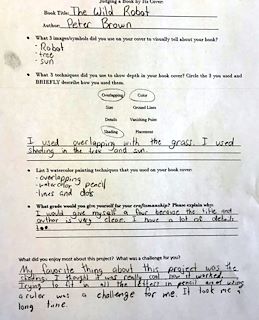 Judging a Book by Its Cover
Book Title: The Wild Robot
Author: Peter Brown
• What 3 images/symbols did you use on your cover to visually tell about your book?
- Robot
- tree
- sun
• What 3 techniques did you use to show depth in your book cover? Circle the 3 you used and
BRIEFLY describe how you used them.
Overlapping Color
Size Ground Lines
Details Vanishing Point
Shading Placement
I used overlapping with the grass. I used
shading in the tree and sun.
• List 3 watercolor painting techniques that you used on your book cover:
- overlapping
- watercolor pencil
- lines and dots
• What grade would you give yourself for your craftsmanship? Please explain why:
I would give myself a four because the title and
author is very clean. I have a lot of details
too.
What did you enjoy most about this project? What was a challenge for you?
My favorite thing about this project was the
shading. I thought it was really cool how it worked.
Trying to fit in all the letters in pencil and using
a ruler was a challenge for me. It took me a
long time.